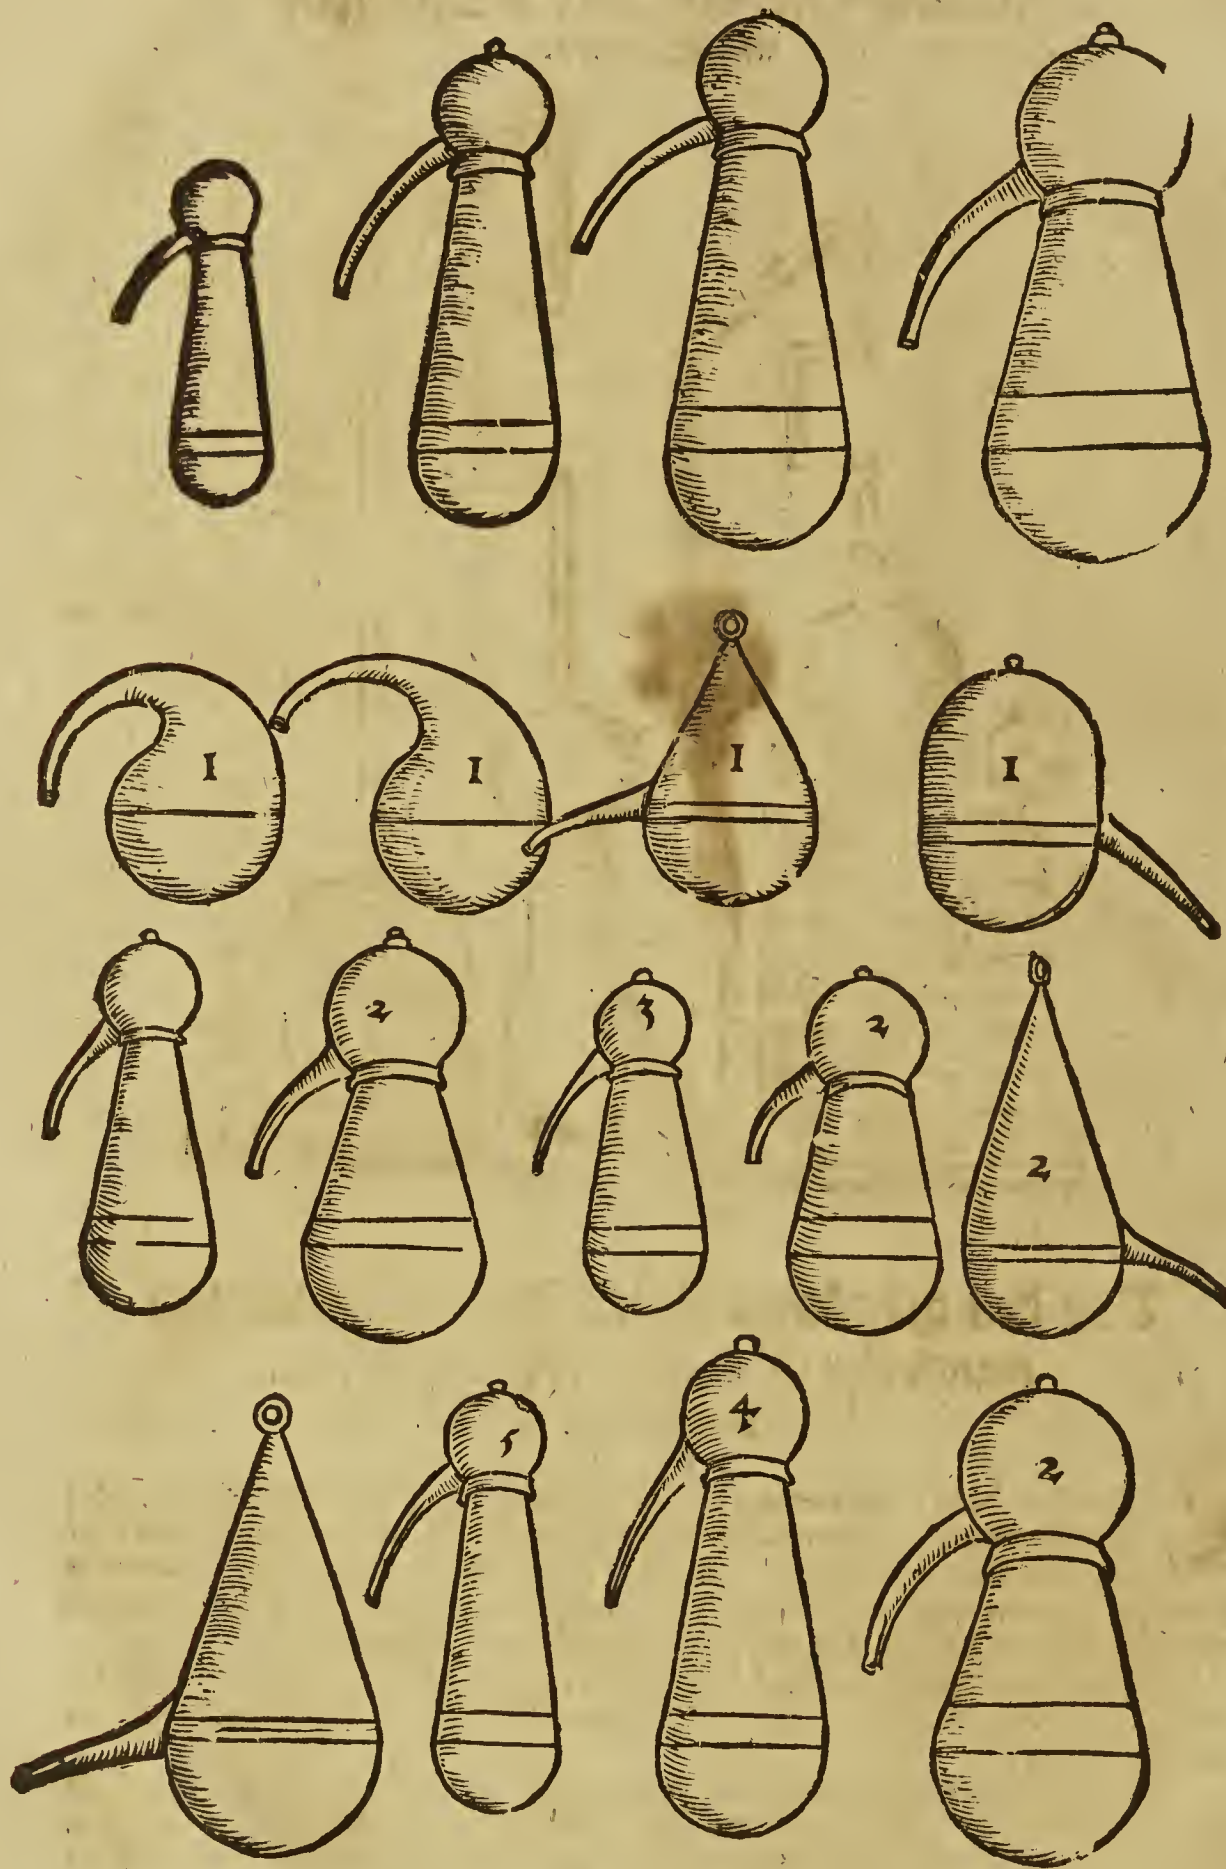 1 1 1 1
2 3 2 2
5 4 2